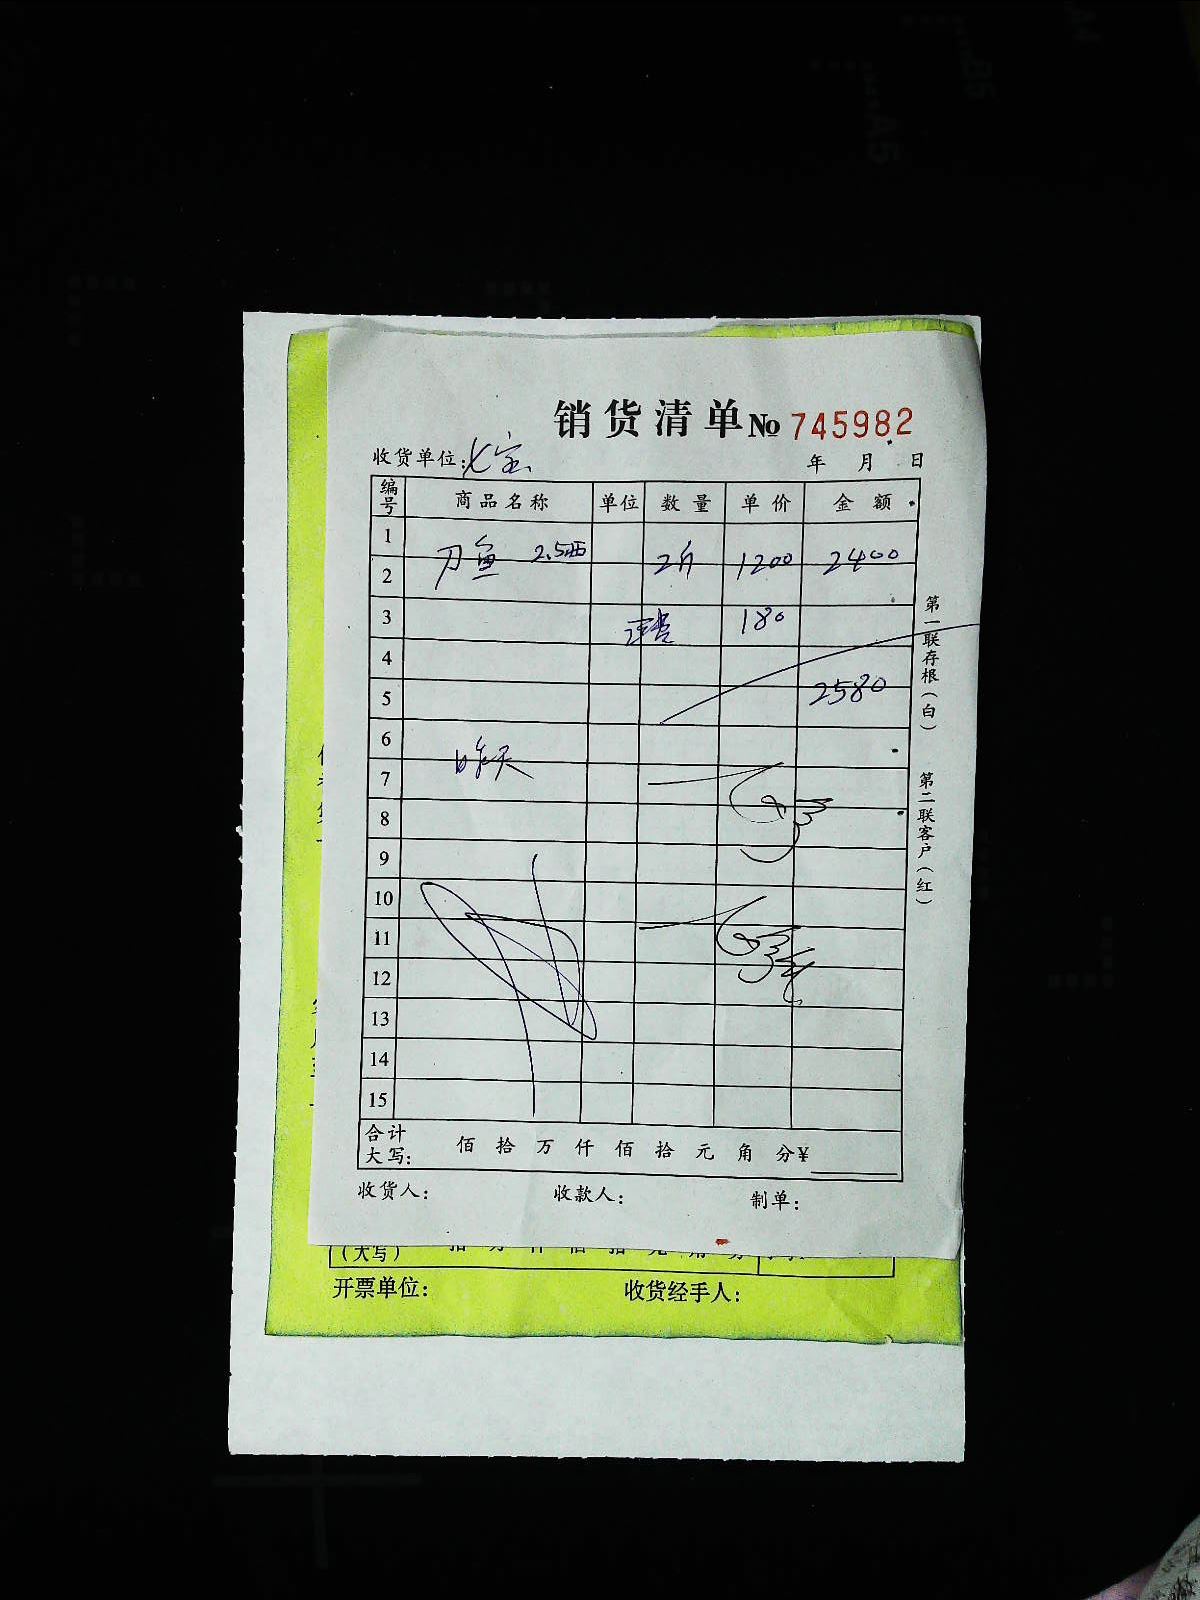 销货清单 № 745982
收货单位：七宝 年 月 日
编号 商品名称 单位 数量 单价 金额
1
刀鱼 2.5两 2斤 1200 2400
2
3 180
4
5 2580
6
昨天
7
8
9
10
11
12
13
14
15
合计大写： 佰 拾 万 仟 佰 拾 元 角 分 ¥
收货人： 收款人： 制单：
第一联存根（白） 第二联客户（红）
（大写）
开票单位： 收货经手人：